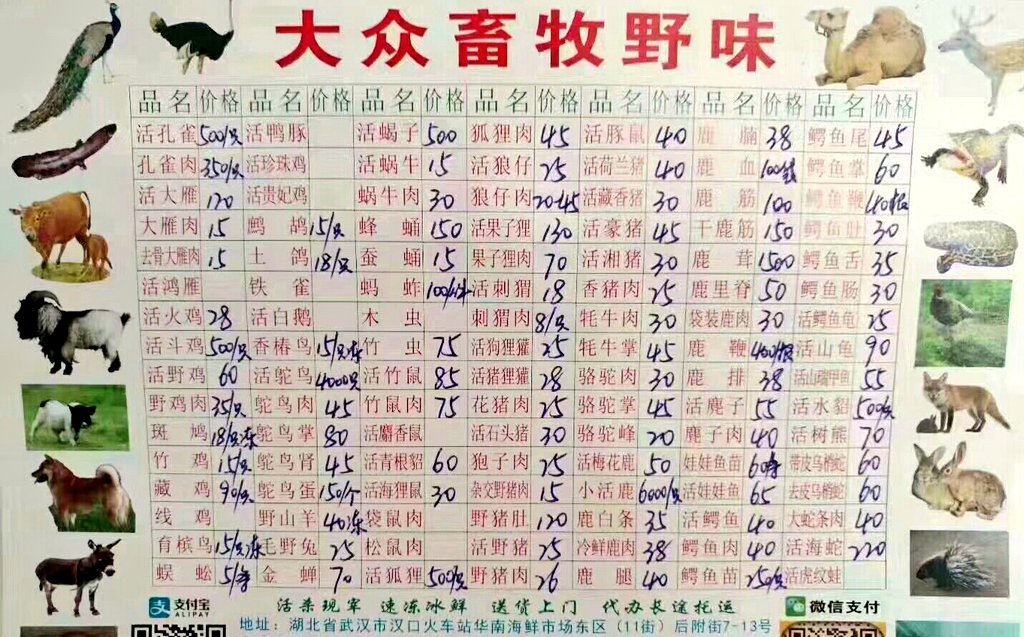 大众畜牧野味
品名 价格 品名 价格 品名 价格 品名 价格 品名 价格 品名 价格 品名 价格
活孔雀 500/只 活鸭豚 活蝎子 500 狐狸肉 45 活豚鼠 40 鹿腩 38 鳄鱼尾 45
孔雀肉 350/只 活珍珠鸡 活蜗牛 15 活狼仔 25 活荷兰猪 40 鹿血 鳄鱼掌 60
活大雁 120 活贵妃鸡 蜗牛肉 30 狼仔肉 20-45 活藏香猪 30 鹿筋 100 鳄鱼鞭 40/根
大雁肉 15 鹧鸪 15/只 蜂蛹 150 活果子狸 130 活豪猪 45 干鹿筋 150 鳄鱼肚 30
去骨大雁肉 15 土鸽 18/只 蚕蛹 15 果子狸肉 70 活湘猪 30 鹿茸 1500 鳄鱼舌 35
活鸿雁 铁雀 蚂蚱 活刺猬 18 香猪肉 25 鹿里脊 50 鳄鱼肠 30
活火鸡 28 活白鹅 木虫 刺猬肉 8/只 牦牛肉 30 袋装鹿肉 30 活鳄鱼龟 25
活斗鸡 500/只 香椿鸟 15/只冻 竹虫 75 活狗狸獾 25 牦牛掌 45 鹿鞭 400/根 活山龟 90
活野鸡 60 活鸵鸟 4000只 活竹鼠 85 活猪狸獾 28 骆驼肉 30 鹿排 38 活山瑞甲鱼 55
野鸡肉 35/只 鸵鸟肉 45 竹鼠肉 75 花猪肉 25 骆驼掌 45 活麂子 55 活水貂 500/只
斑鸠 18/只冻 鸵鸟掌 80 活麝香鼠 活石头猪 30 骆驼峰 20 鹿子肉 40 活树熊 70
竹鸡 15/只 鸵鸟肾 45 活青根貂 60 狍子肉 25 活梅花鹿 50 娃娃鱼苗 带皮乌梢蛇 60
藏鸡 90/只 鸵鸟蛋 150/个 活海狸鼠 30 杂交野猪肉 15 小活鹿 6000/只 活娃娃鱼 65 去皮乌梢蛇 60
线鸡 野山羊 40冻 袋鼠肉 野猪肚 120 鹿白条 35 活鳄鱼 40 大蛇条肉 40
育槟鸟 15/只冻 毛野兔 25 松鼠肉 活野猪 25 冷鲜鹿肉 38 鳄鱼肉 40 活海蛇 220
蜈蚣 金蝉 70 活狐狸 500/只 野猪肉 26 鹿腿 40 鳄鱼苗 250/只 活虎纹蛙
支 支付宝 ALIPAY 活杀现宰 速冻冰鲜 送货上门 代办长途托运 微信支付
地址：湖北省武汉市汉口火车站华南海鲜市场东区（11街）后附街7-13号